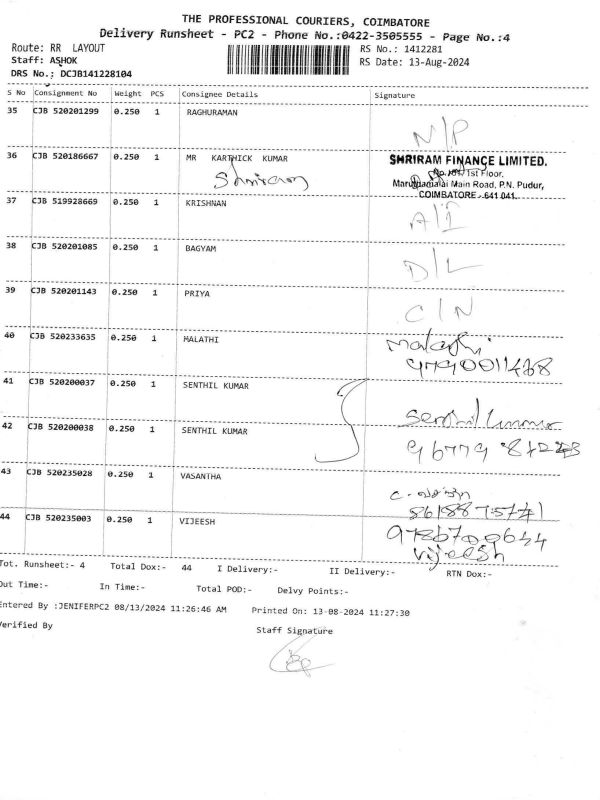 THE PROFESSIONAL COURIERS, COIMBATORE
Delivery Runsheet - PC2 - Phone No.:0422-3505555 - Page No.:4
Route: RR LAYOUT RS No.: 1412281
Staff: ASHOK RS Date: 13-Aug-2024
DRS No.; DCJB141228104
S No Consignment No Weight PCS Consignee Details Signature
35 CJB 520201299 0.250 1 RAGHURAMAN N/P
36 CJB 520186667 0.250 1 MR KARTHICK KUMAR SHRIRAM FINANCE LIMITED.
Shriram 1st Floor,
Marudhamalai Main Road, P.N. Pudur,
COIMBATORE - 641 041.
37 CJB 519928669 0.250 1 KRISHNAN
38 CJB 520201085 0.250 1 BAGYAM D/L
39 CJB 520201143 0.250 1 PRIYA C/N
40 CJB 520233635 0.250 1 MALATHI Malathi
41 CJB 520200037 0.250 1 SENTHIL KUMAR
Senthil kumar
42 CJB 520200038 0.250 1 SENTHIL KUMAR
43 CJB 520235028 0.250 1 VASANTHA
44 CJB 520235003 0.250 1 VIJEESH
Vijeesh
Tot. Runsheet:- 4 Total Dox:- 44 I Delivery:- II Delivery:- RTN Dox:-
Out Time:- In Time:- Total POD:- Delvy Points:-
Entered By :JENIFERPC2 08/13/2024 11:26:46 AM Printed On: 13-08-2024 11:27:30
Verified By Staff Signature